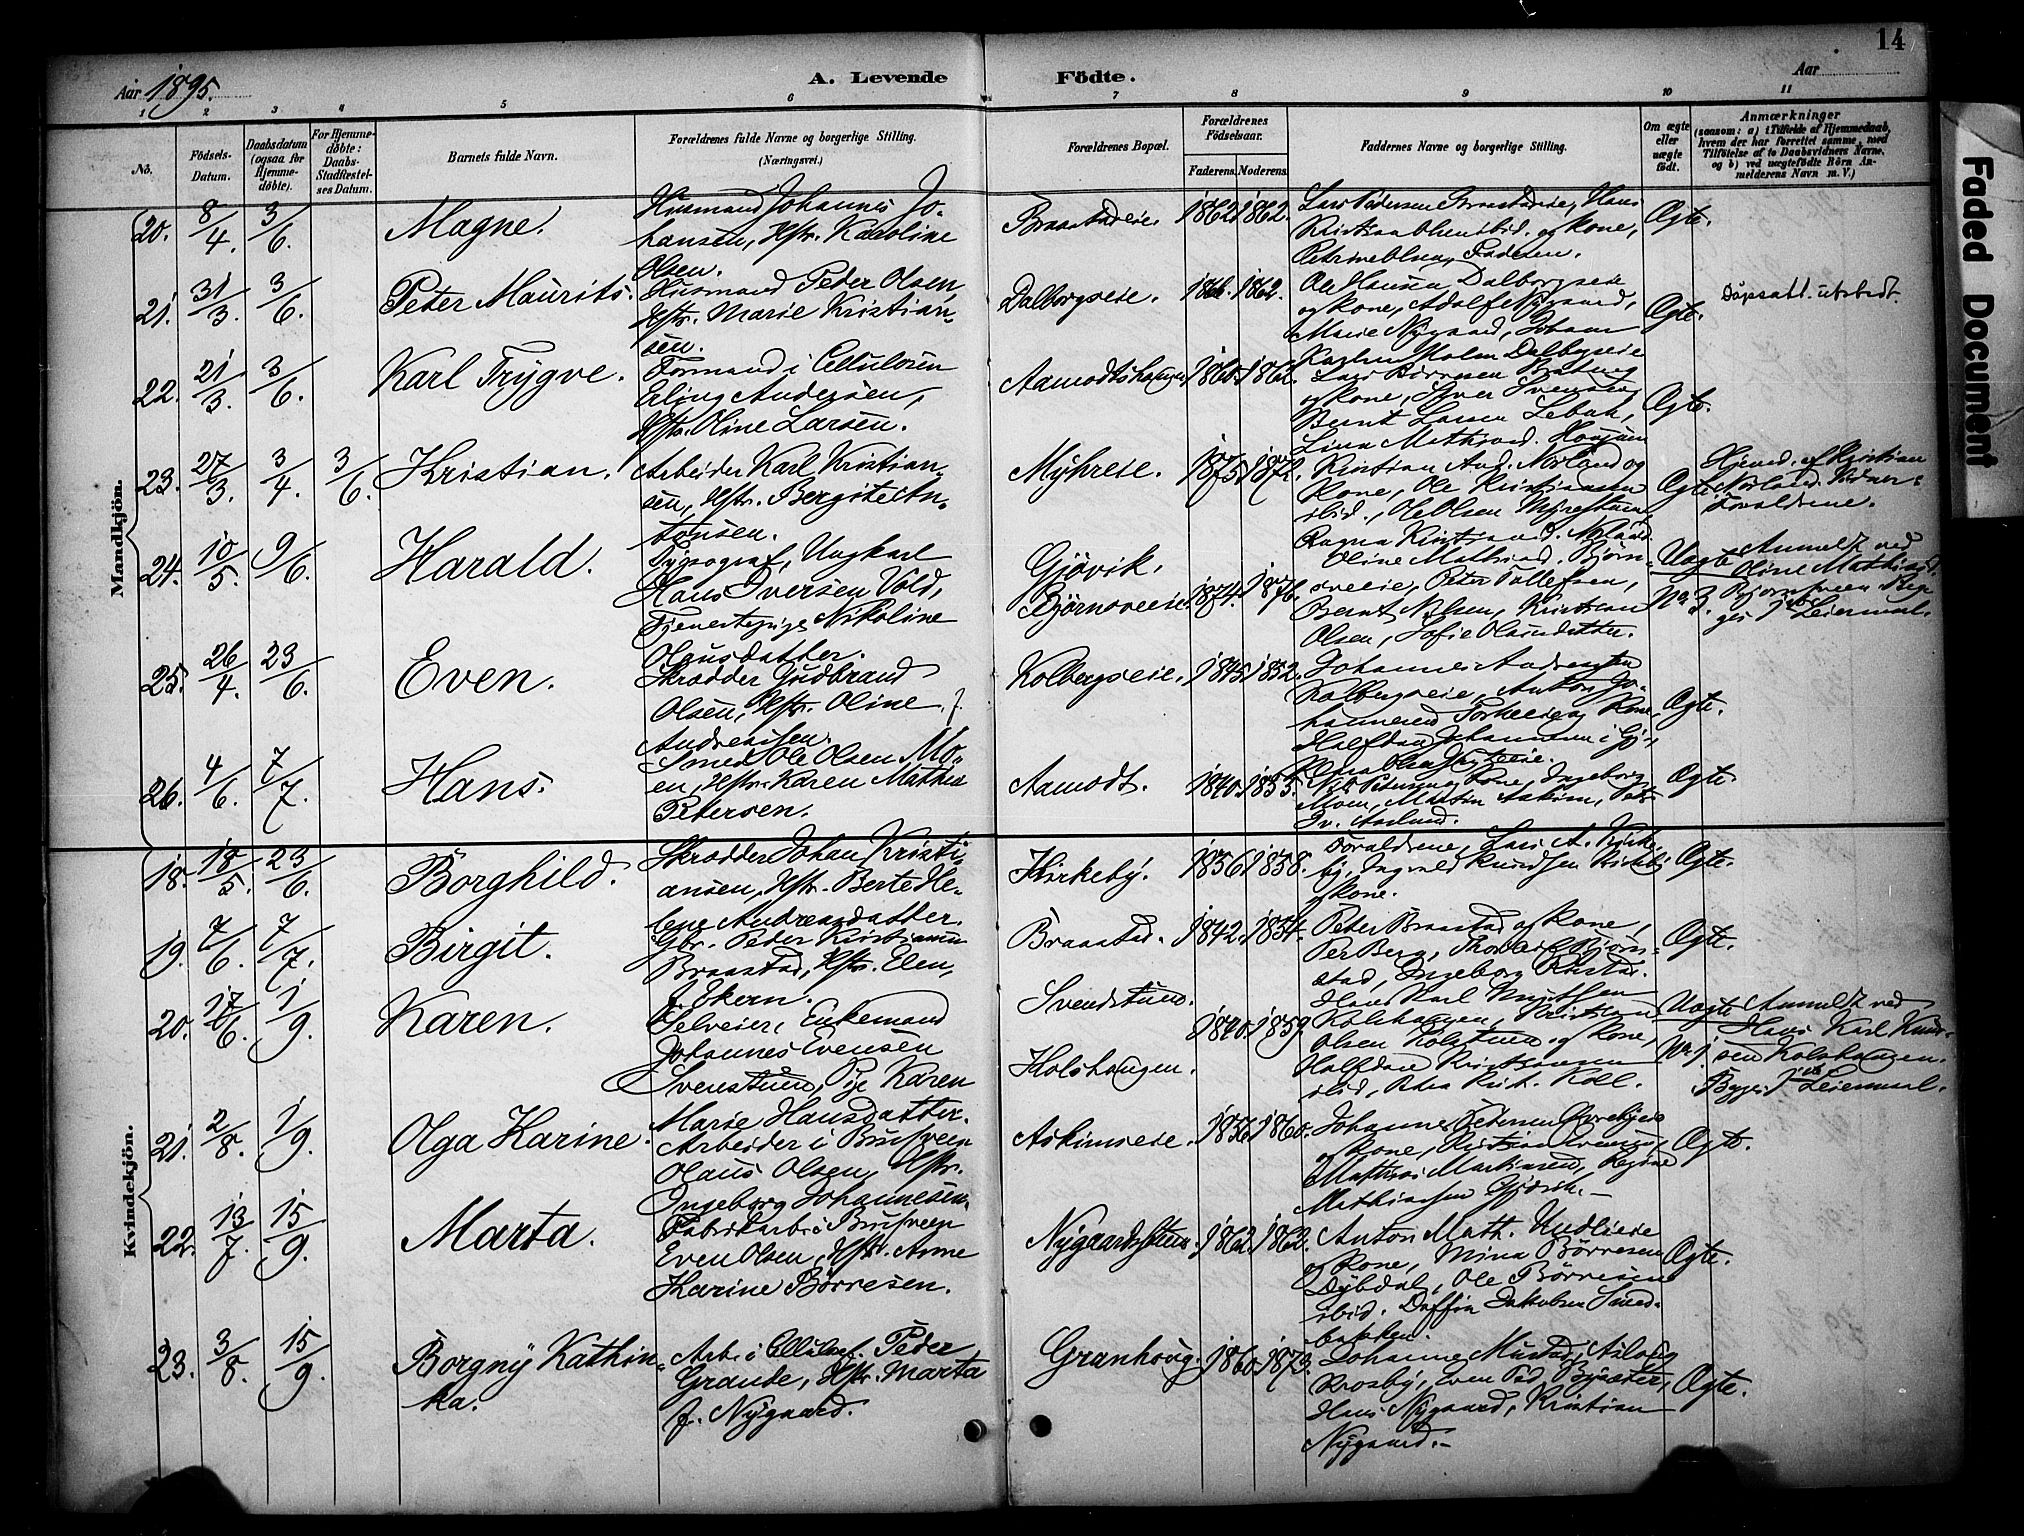 14
Aar 1895.
A. Levende Födte.
Aar
1 2 3 4 5 6 7 8 9 10 11
No.
Födsels-Datum.
Daabsdatum (ogsaa for Hjemme-döbte).
For Hjemme-döbte: Daabs-Stadfæstel-ses Datum.
Barnets fulde Navn.
Forældrenes fulde Navne og borgerlige Stilling. (Næringsvei.)
Forældrenes Bopæl.
Forældrenes Födselsaar.
Faderens. Moderens.
Faddernes Navne og borgerlige Stilling.
Om ægte eller uægte födt.
Anmærkninger
(saasom: a) i Tilfælde af Hjemmedaab, hvem der har forrettet samme, med Tilföielse af to Daabsvidners Navne, og b) ved uægtefödte Börn An-melderens Navn m. V.)
Mandkjön.
20. 8/4. 3/6. Magne.
Husmand Johannes Jo-
hansen, Hstr. Karoline
Olsen.
Braastadeie. 1862. 1862.
Lars Pedersen Braastadeie, Hans
Kristian Olsen ibid. og Kone,
Petrine Olsen, Faderen.
Ægte.
21. 31/3. 3/6. Peter Maurits.
Husmand Peder Olsen,
Hstr. Marie Kristian-
sen.
Dalborgseie. 1866. 1862.
Ole Hansen Dalborgseie
og Kone, Adolf Nygaard,
Marie Nygaard, Johan
Ægte.
Dåpsatt. utstedt.
22. 21/3. 3/6. Karl Trygve.
Formand i Cellulosen
Erling Andersen,
Hstr. Oline Larsen.
Aamodtshaugen 1860. 1862.
Lars Börresen
og Kone, Syver Svendsen,
Bernt Larsen
Ægte.
23. 27/3. 3/4. 3/6. Kristian.
Arbeider Karl Kristian-
sen, Hstr. Bergitte An-
tonsen.
Myhreie. 1875. 1872.
Kristian And. Norland og
Kone, Ole Kristiansen
ibid., Ole Olsen
Ægte.
Hjemd. af Kristian
Norland. Vidner:
Forældrene.
24. 10/5. 9/6. Harald.
Typograf, Ungkarl
Hans Iversen Vold,
Tjenestepige Nikoline
Olausdatter.
Gjövik.
Bjørnsveeie. 1874. 1876.
Oline Mathisd. Bjørns-
veeie, Peter Tollefsen,
Bernt Nilsen, Kristian
Olsen, Sofie Olausdatter.
Uægte
No 3.
Anmeldt ved
Oline Mathisd.
25. 26/4. 23/6. Even.
Skrædder Gudbrand
Olsen, Hstr. Oline
Andreassen.
Kolbergseie. 1845. 1852.
Johannes Andreassen
Kolbergseie, Anton Jo-
hannesen
Halfdan Johansen i Gj.,
Ægte.
26. 4/6. 7/7. Hans.
Smed Ole Olsen Mo-
en, Hstr. Karen Mathea
Petersen.
Aamodt. 1840. 1855.
Kone, Ingeborg
Moen, Martin Askim,
Ægte.
Kvindekjön.
18. 18/5. 23/6. Borghild.
Skrædder Johan Kristi-
ansen, Hstr. Berte He-
lene Andreasdatter.
Kirkeby. 1856. 1858.
Forældrene, Lars A. Kirke-
by, Ingvald Knudsen Kirkeby
og Kone.
Ægte.
19. 7/6. 7/7. Birgit.
Gbr. Peder Kristiansen
Braastad, Hstr. Elen
f. Ekern.
Braastad. 1842. 1854.
Peter Braastad og Kone,
Per Berg, Thorvald Bjørn-
stad, Ingeborg
Ægte.
20. 17/6. 1/9. Karen.
Selveier, Enkemand
Johannes Evensen
Svenstuen, Pige Karen
Marie Hansdatter.
Svendstuen.
Kolshaugen. 1840. 1859.
Hans Karl Knutsen
Kolshaugen, Kristian
Olsen Kolstuen og Kone,
Halfdan Kristiansen
ibid, Petra Krist. Koll.
Uægte
No 1.
Anmeldt ved
Hans Karl Knut-
sen Kolshaugen.
Begges 1ste Leiermaal.
21. 2/8. 1/9. Olga Karine.
Arbeider i Brusveen
Olaus Olsen, Hstr.
Ingeborg Johannesen.
Askimseie. 1856. 1860.
Johannes Petersen
og Kone, Kristian Evensen,
Mathias Martinsen, Regine
Mathiassen Gjövik.
Ægte.
22. 13/7. 15/9. Marta.
Fabrikarb. i Brusveen
Even Olsen, Hstr. Anne
Karine Börresen.
Nygaardstuen. 1862. 1862.
Anton Math. Hudleeie
og Kone, Mina Börresen
Dybdal, Ole Börresen
ibid. Daffin Jakobsen Smed-
bakken.
Ægte.
23. 3/8. 15/9. Borgny Kathin-
ka.
Arb. i Cellulosef. Peder
Grande, Hstr. Marta
f. Nygaard.
Granhoug. 1860. 1873.
Johanne Mustad, Aslaug
Krosby, Even Ped. Bysæter,
Hans Nygaard, Kristian
Nygaard.
Ægte.
Faded Document